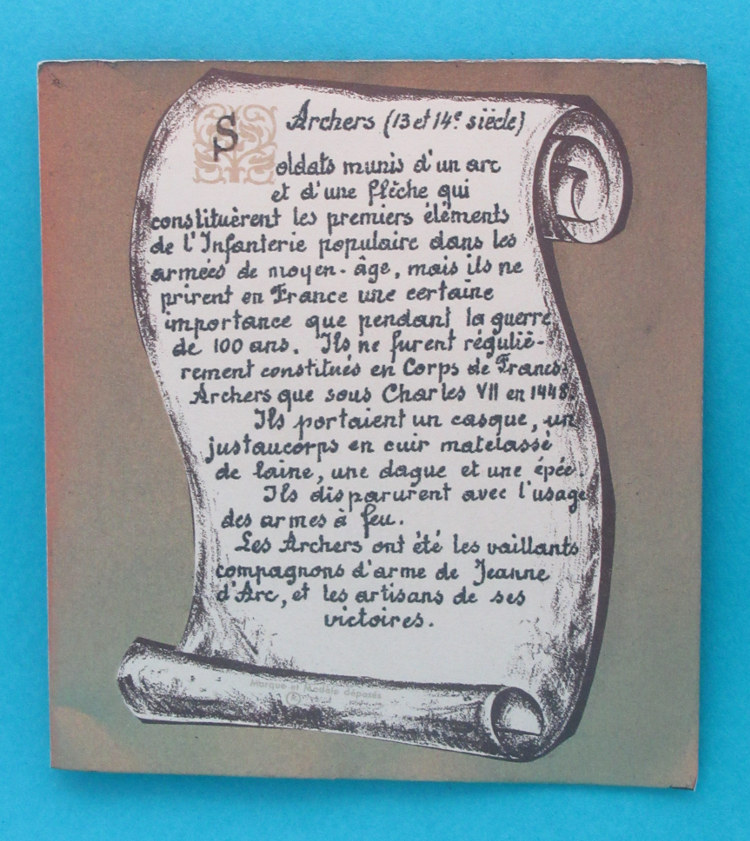 Archers (13 et 14e siècle)
Soldats munis d'un arc
et d'une flèche qui
constituèrent les premiers éléments
de l'Infanterie populaire dans les
armées de moyen-âge, mais ils ne
prirent en France une certaine
importance que pendant la guerre
de 100 ans. Ils ne furent réguliè-
rement constitués en Corps de Francs
Archers que sous Charles VII en 1448.
Ils portaient un casque, un
justaucorps en cuir matelassé
de laine, une dague et une épée.
Ils disparurent avec l'usage
des armes à feu.
Les Archers ont été les vaillants
compagnons d'arme de Jeanne
d'Arc, et les artisans de ses
victoires.
Marque et Modèle déposés